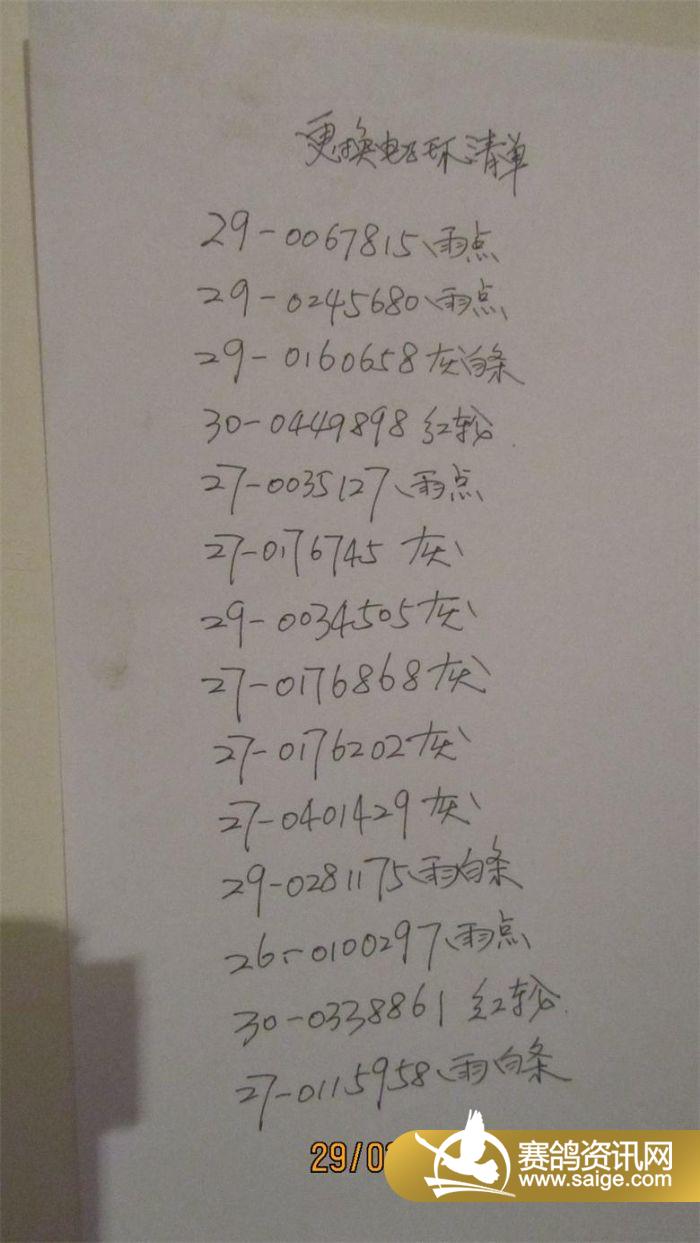 更换电子环清单
29-0067815、雨点
29-0245680、雨点
29-0160658灰白条
30-0449898红轮.
27-0035127、雨点
27-0176745 灰
29-0034505灰
27-0176868灰
27-0176202灰
27-0401429灰
29-0281175雨白条
26-0100297、雨点
30-0338861 红轮.
27-0115958、雨白条
29/0
赛鸽资讯网
www.saige.com